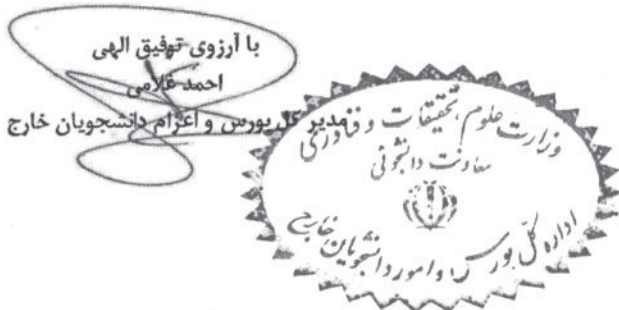 با آرزوی توفیق الهی
احمد غلامی
مدیر کل بورس و اعزام دانشجویان خارج
وزارت علوم، تحقیقات و فناوری
معاونت دانشجوئی
اداره کل بورس و امور دانشجویان خارج